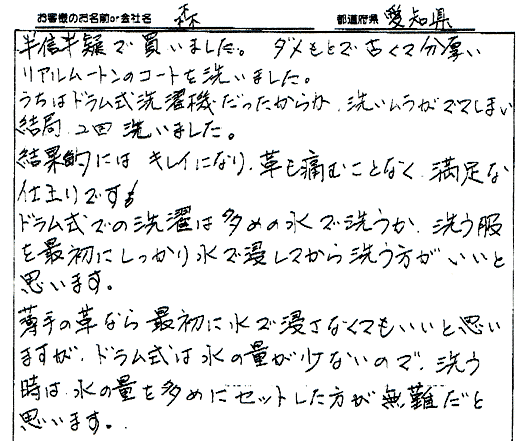 お客様のお名前or会社名 森 都道府県 愛知県
半信半疑で買いました。 ダメもとで古くて分厚い
リアルムートンのコートを洗いました。
うちはドラム式洗濯機だったからか、洗いムラがでてしまい
結局、2回洗いました。
結果的には キレイになり、革も痛むことなく、満足な
仕上りです
ドラム式での洗濯は多めの水で洗うか、洗う服
を最初にしっかり水で浸してから洗う方がいいと
思います。
薄手の革なら最初に水で浸さなくてもいいと思い
ますが、ドラム式は水の量が少ないので、洗う
時は、水の量を多めにセットした方が無難だと
思います。